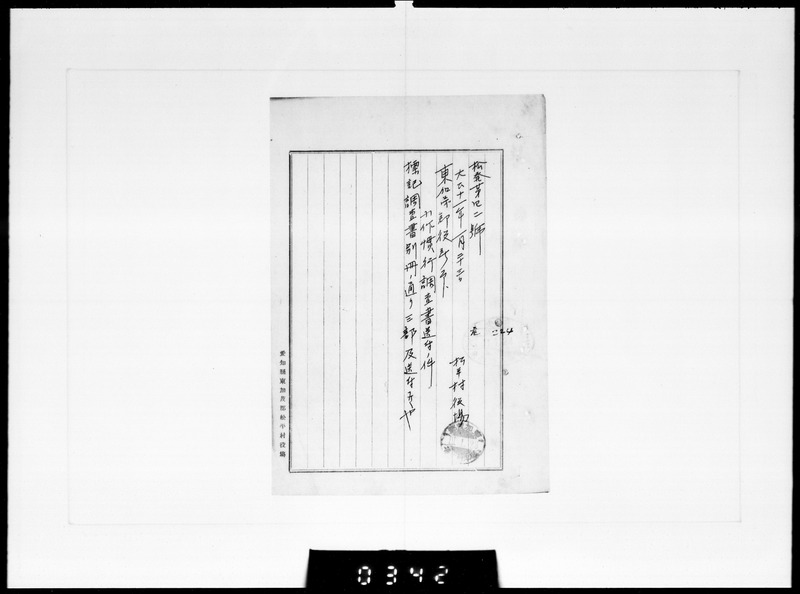 松発第四二號
大正十一年一月二十三日
松平村役場
東加茂郡役所
小作慣行調査書送付ノ件
標記調査書別冊ノ通リ三部及送付候也
愛知縣東加茂郡松平村役場
0342